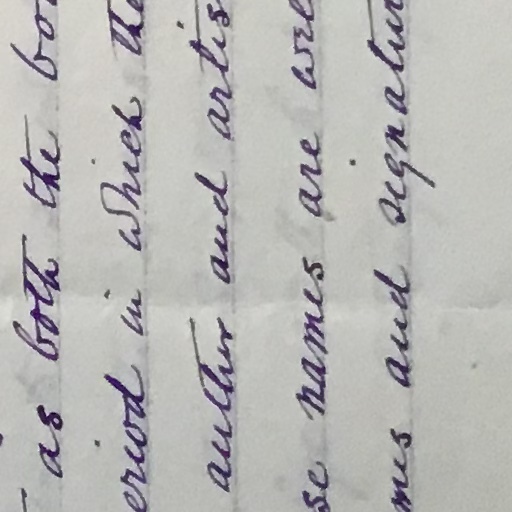 as both the boo
eriod in which the
author and artis
se names are wel
mes and signatur